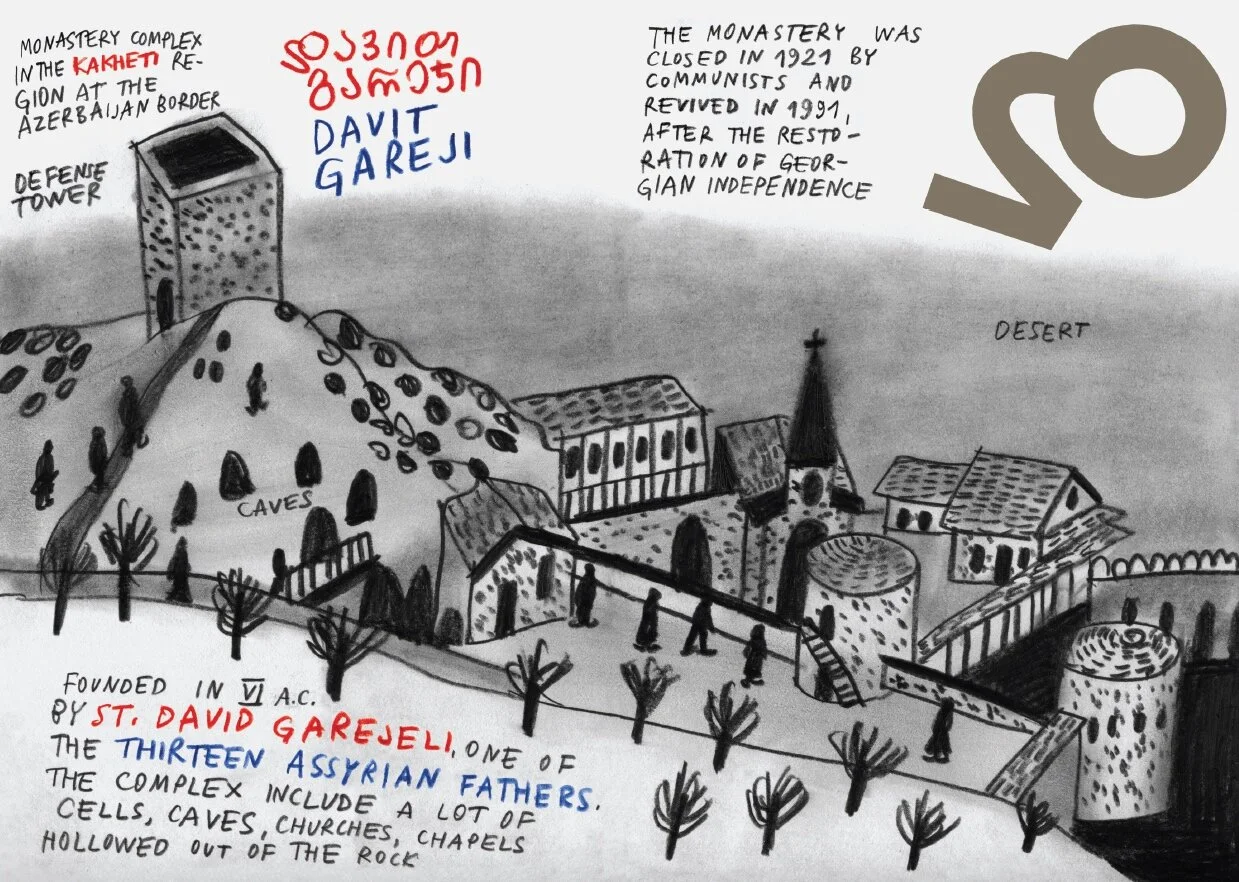 MONASTERY COMPLEX
IN THE KAKHETI RE-
GION AT THE
AZERBAIJAN BORDER
DEFENSE
TOWER
დავით
გარეჯი
DAVIT
GAREJI
THE MONASTERY WAS
CLOSED IN 1921 BY
COMMUNISTS AND
REVIVED IN 1991,
AFTER THE RESTO-
RATION OF GEOR-
GIAN INDEPENDENCE
დ
DESERT
CAVES
FOUNDED IN VI A.C.
BY ST. DAVID GAREJELI, ONE OF
THE THIRTEEN ASSYRIAN FATHERS.
THE COMPLEX INCLUDE A LOT OF
CELLS, CAVES, CHURCHES, CHAPELS
HOLLOWED OUT OF THE ROCK